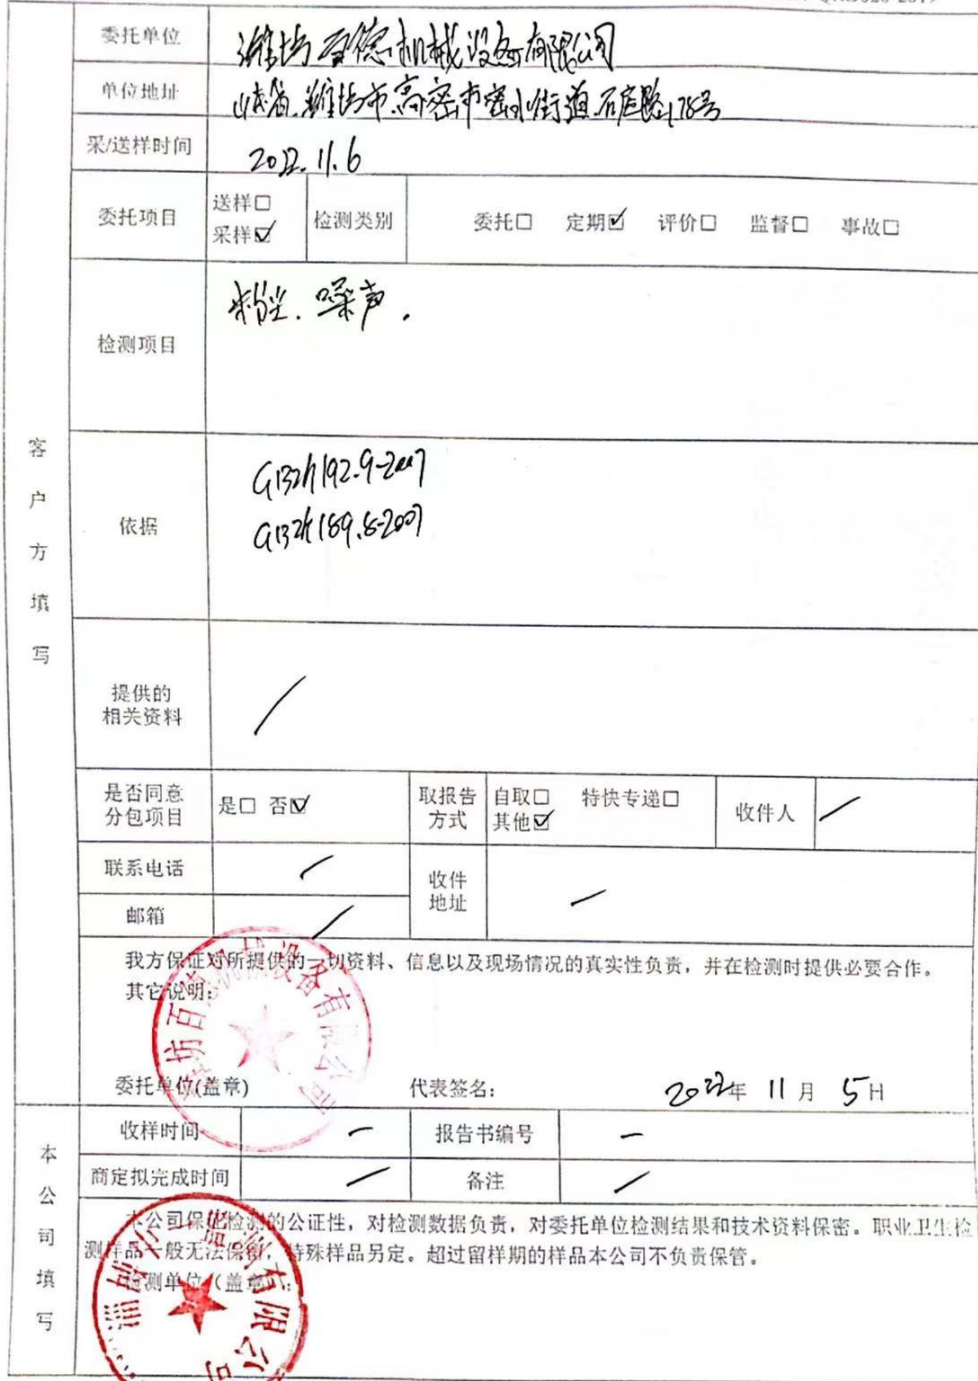 委托单位 潍坊百德机械设备有限公司
单位地址 山东省潍坊市高密市密水街道石庭路178号
采/送样时间 2022.11.6
委托项目 送样□ 采样☑ 检测类别 委托□ 定期☑ 评价□ 监督□ 事故□
检测项目 粉尘、噪声.
客户方填写
依据
GBZ/T192.9-2007
GBZ/T189.8-2007
提供的
相关资料 /
是否同意
分包项目 是□ 否☑
取报告
方式 自取□ 特快专递□
其他☑
收件人 /
联系电话 /
收件
地址 /
邮箱 /
我方保证对所提供的一切资料、信息以及现场情况的真实性负责,并在检测时提供必要合作。
其它说明:
委托单位(盖章) 代表签名: 2022年 11月 5日
坊百德机械设备有限公司
本公司填写
收样时间 — 报告书编号 —
商定拟完成时间 / 备注 /
本公司保证检测的公证性,对检测数据负责,对委托单位检测结果和技术资料保密。职业卫生检
测样品一般无法保留,特殊样品另定。超过留样期的样品本公司不负责保管。
检测单位(盖章):
有限公司